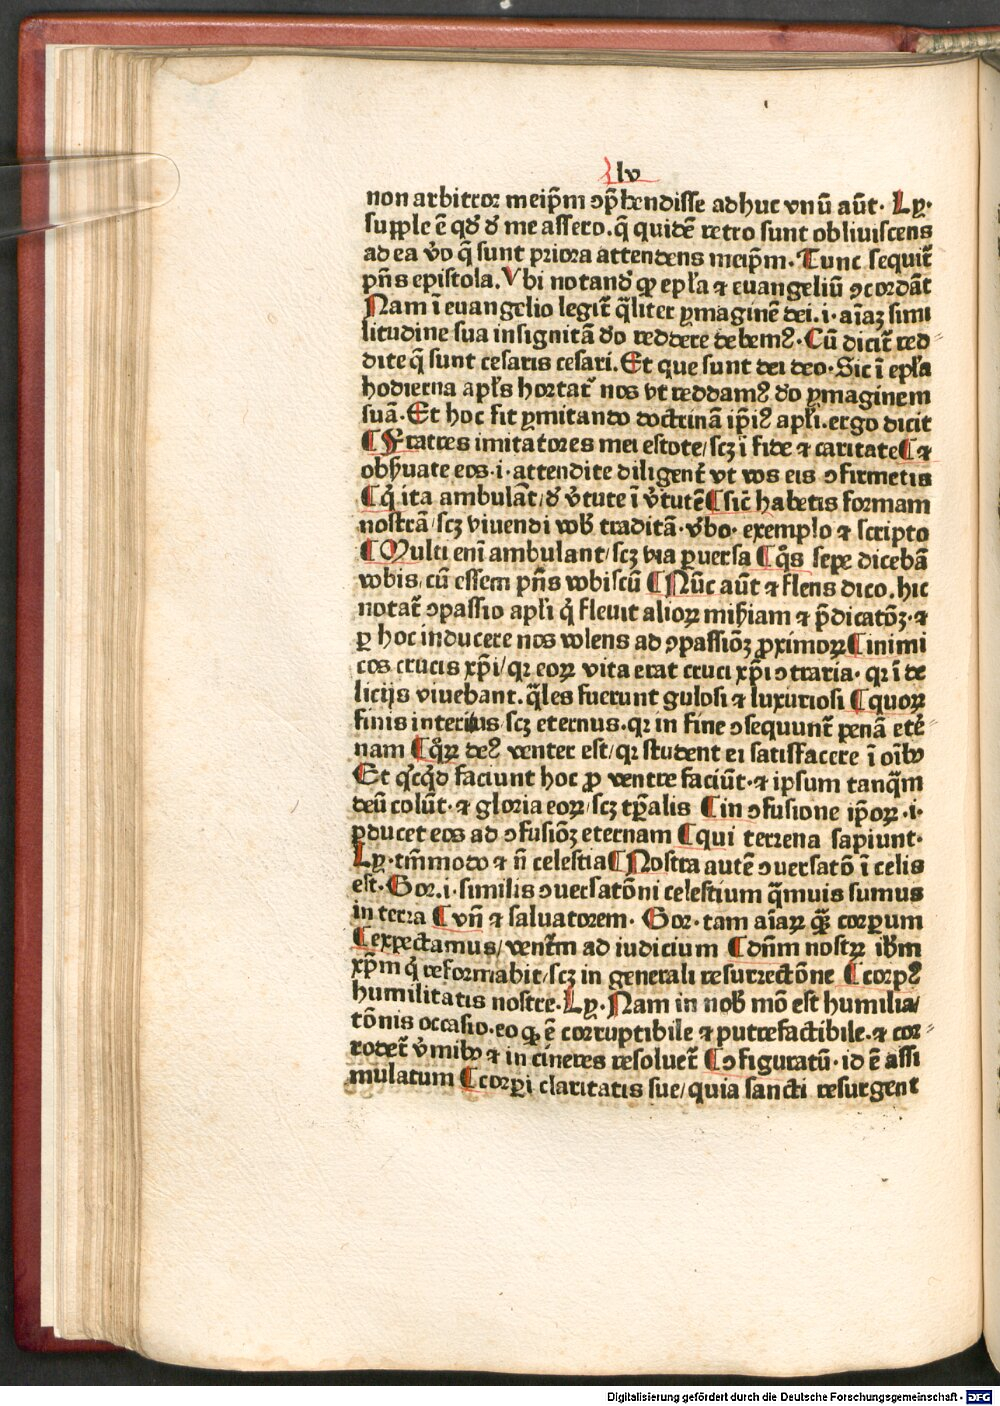 lv
non arbitror meip̄m ꝯp̄hendisse adhuc vnū aūt. Ly.
supple ē qd̓ d̓ me assero. q̄ quidē retro sunt obliuiscens
ad ea v̓o q̄ sunt priora attendens meip̄m. Tunc sequit᷑
pn̄s epistola. Vbi notand̓ ꝙ epl̓a ⁊ euangeliū ꝯcordāt
Nam ī euangelio legit᷑ q̄liter ymaginē dei. i. aīaꝫ simi
litudine sua insignitā d̓o reddere debemꝰ. Cū dicit᷑ red⸗
dite q̄ sunt cesaris cesari. Et que sunt dei deo. Sic ī epl̓a
hodierna apl̓s hortat᷑ nos vt reddamꝰ d̓o ymaginem
suā. Et hoc fit ymitando doctrinā ip̄iꝰ apl̓i. ergo dicit
¶ Fratres imitatores mei estote/ scꝫ ī fide ⁊ caritate ¶ ⁊
obẜuate eos .i. attendite diligent᷑ vt vos eis ꝯfirmetis
¶ Q̓ ita ambulāt/ d̓ v̓tute ī v̓tutē ¶ sic̄ habetis formam
nostrā/ scꝫ viuendi vob̓ traditā. v̓bo. exemplo ⁊ scripto
¶ Multi enī ambulant/ scꝫ via ꝑuersa ¶ q̄s sepe dicebā
vobis/ cū essem pn̄s vobiscū ¶ Nūc aūt ⁊ flens dico. hic
notat᷑ ꝯpassio apl̓i q̓ fleuit alioꝝ miẜiam ⁊ p̄dicatōꝫ. ⁊
ꝑ hoc inducere nos volens ad ꝯpassiōꝫ ꝓximoꝝ ¶ inimi
cos crucis xp̄i/ qr eoꝝ vita erat cruci xp̄i ꝯtraria. qr ī de
licijs viuebant. q̄les fuerunt gulosi ⁊ luxuriosi ¶ quoꝝ
finis interitus/ scꝫ eternus. qr in fine ꝯsequunt᷑ penā etė⸗
nam ¶ q̓ꝝ deꝰ venter est/ qr student ei satisfacere ī oībꝰ
Et q̓cq̓d faciunt hoc ꝓ ventre faciūt. ⁊ ipsum tanq̄m
deū colūt. ⁊ gloria eoꝝ/ scꝫ tp̄alis ¶ in ꝯfusione ip̄oꝝ .i.
ꝑducet eos ad ꝯfusiōꝫ eternam ¶ qui terrena sapiunt.
Ly. tm̄modo ⁊ n̄ celestia ¶ Nostra autē ꝯuersatō ī celis
est. Gor. i. similis ꝯuersatōni celestium q̄muis sumus
in terra ¶ vn̄ ⁊ saluatorem. Gor. tam aīaꝝ qᷓꝫ corꝑum
¶ expectamus/ vent᷑m ad iudicium ¶ dn̄m nostꝝ ih̄m
xp̄m q̓ reformabit/ scꝫ in generali resurrectōne ¶ corpꝰ
humilitatis nostre. Ly. Nam in nob̓ mō est humilia/
tōnis occasio. eo ꝙ ē corruptibile ⁊ putrefactibile. ⁊ cor⸗
rodet᷑ v̓mibꝰ ⁊ in cineres resoluet᷑ ¶ ꝯfiguratū. id ē assi
mulatum ¶ corꝑi claritatis sue/ quia sancti resurgent
Digitalisierung gefördert durch die Deutsche Forschungsgemeinschaft - DFG